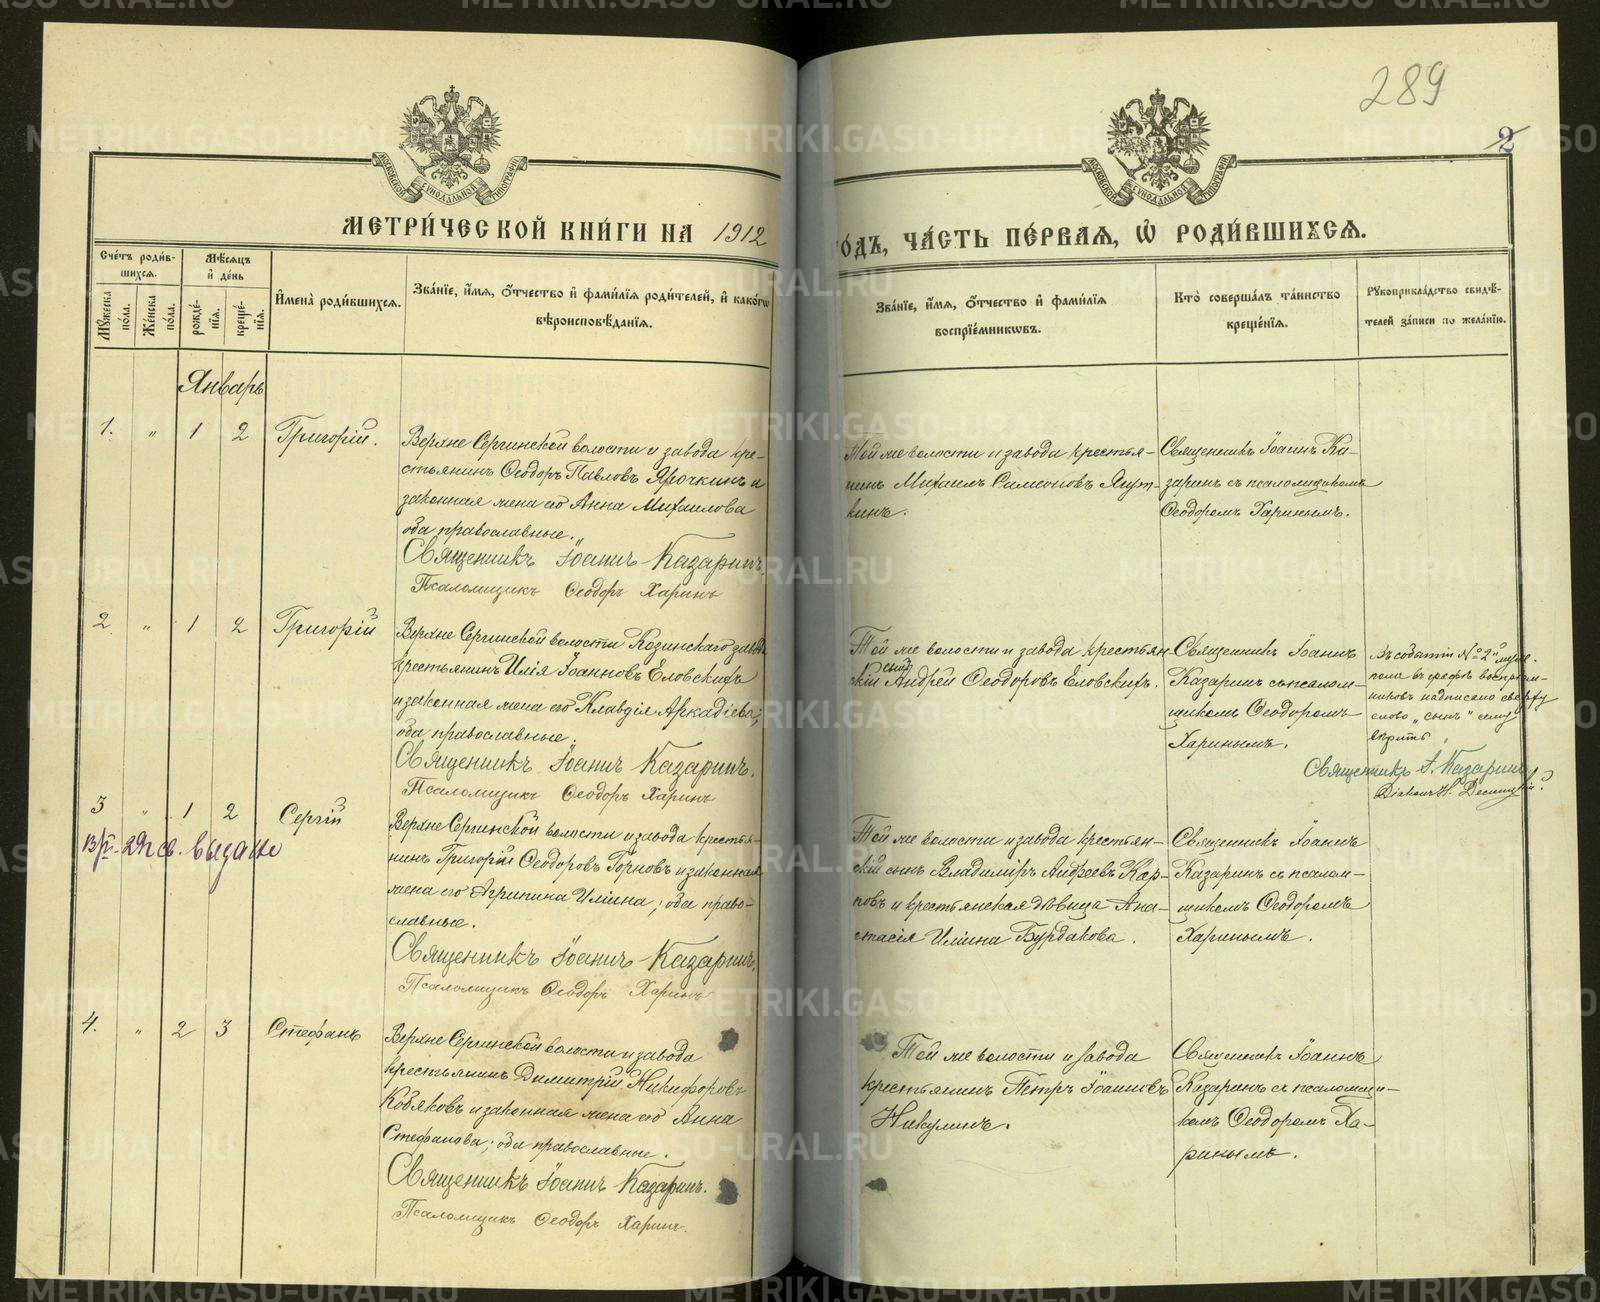 289
2
МОСКОВСКОЙ СѴНОДАЛЬНОЙ ТИПОГРАФІИ
МОСКОВСКОЙ СѴНОДАЛЬНОЙ ТИПОГРАФІИ
МЕТРИ́ЧЕСКОЙ КНИ́ГИ НА 1912
ГО́ДЪ, ЧА́СТЬ ПЕ́РВАЯ, Ѽ РОДИ́ВШИХСЯ.
Сче́тъ роди́в-
шихся.
Мꙋ́жеска
по́ла.
Же́нска
по́ла.
Мѣ́сяцъ
и҆ де́нь
рожде́-
нія.
креще́-
нія.
И҆мена̀ роди́вшихся.
Зва́ніе, и҆́мя, ѻ҆́тчество и҆ фами́лія роди́телей, и҆ како́гѡ
вѣроисповѣ́данія.
Зва́ніе, и҆́мя, ѻ҆́тчество и҆ фами́лія
воспріе́мникωвъ.
Кто̀ соверша́лъ та́инство
креще́нія.
Рꙋкоприкла́дство свидѣ́-
телей за́писи по жела́нію.
Январь
1. " 1 2 Григорій.
Верхне Сергинской волости и завода кре-
стьянинъ Ѳеодоръ Павловъ Ярочкинъ и
законная жена его Анна Михаилова
оба православные.
Священникъ Іоаннъ Казаринъ.
Псаломщикъ Ѳеодоръ Харинъ
Той же волости и завода крестья-
нинъ Михаилъ Симеоновъ
Священникъ Іоаннъ Ка-
заринъ съ псаломщикомъ
Ѳеодоромъ Харинымъ.
2 " 1 2 Григорій
Верхне Сергинской волости Козинскаго завода
крестьянинъ Илія Іоанновъ Еловскихъ
и законная жена его Клавдія Аркадіева;
оба православные.
Священникъ Іоаннъ Казаринъ.
Псаломщикъ Ѳеодоръ Харинъ
Той же волости и завода крестьян
скій сынъ Андрей Ѳеодоровъ Еловскихъ.
Священникъ Іоаннъ
Казаринъ съ псалом-
щикомъ Ѳеодоромъ
Харинымъ.
Въ событіи № 2й муж.
пола въ графѣ воспріем-
никовъ надписано сверху
слово „сынъ" сему
вѣрить
Священникъ І. Казаринъ
Діаконъ Н.
3 " 1 2 Сергій
выдано
Верхне Сергинской волости и завода крестья-
нинъ Григорій Ѳеодоровъ Горновъ и законная
жена его Агрипина Иліина; оба право-
славные.
Священникъ Іоаннъ Казаринъ.
Псаломщикъ Ѳеодоръ Харинъ
Той же волости и завода крестьян-
скій сынъ Владиміръ Андреевъ Кар-
повъ и крестьянская дѣвица Ана-
стасія Иліина Бурдакова.
Священникъ Іоаннъ
Казаринъ съ псалом-
щикомъ Ѳеодоромъ
Харинымъ.
4. " 2 3 Стефанъ
Верхне Сергинской волости и завода
крестьянинъ Димитрій Никифоровъ
Кобяковъ и законная жена его Анна
Стефанова; оба православные.
Священникъ Іоаннъ Казаринъ.
Псаломщикъ Ѳеодоръ Харинъ.
Той же волости и завода
крестьянинъ Петръ Іоанновъ
Никулинъ.
Священникъ Іоаннъ
Казаринъ съ псаломщи-
комъ Ѳеодоромъ Ха-
ринымъ.
METRIKI.GASO-URAL.RU